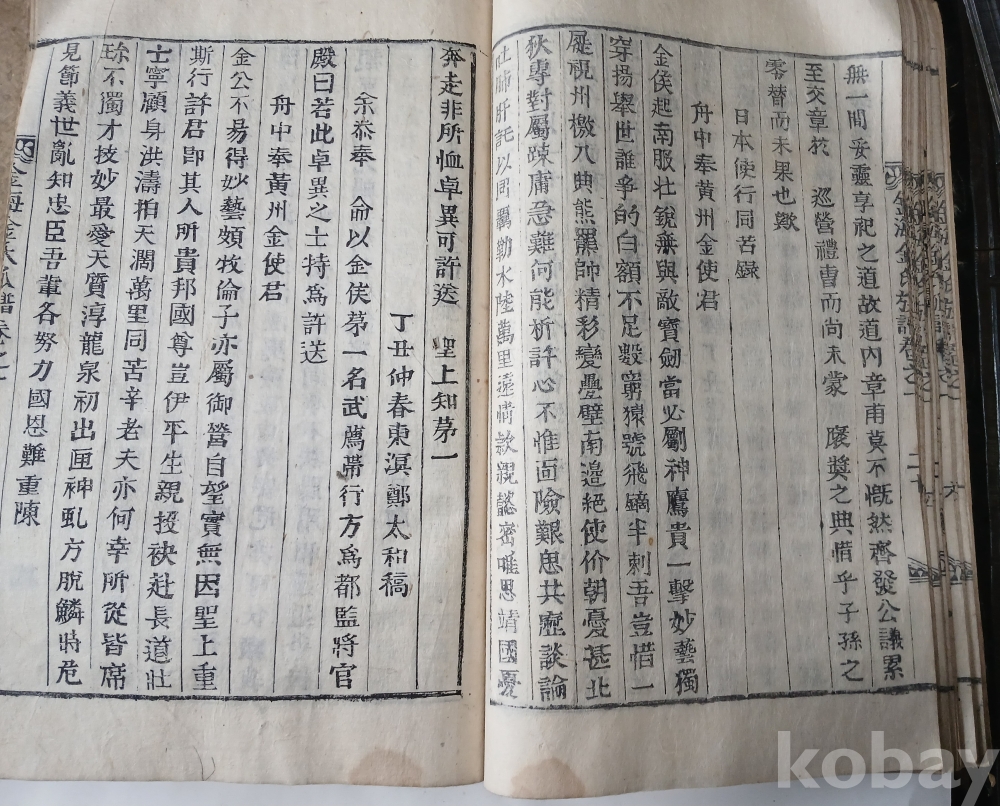 無一間妥靈享祀之道故道內章甫莫不慨然齊發公議累
至交章於 巡營禮曹而尚未蒙 褒奬之典惜乎子孫之
零替而未果也歟
日本使行同苦錄
舟中奉黄州金使君
金侯起南服壮銳無與敵寶劒當必剸神鷹貴一擊妙藝獨
穿揚舉世誰爭的白額不足殺窮猿號飛鏑半刺吾豈惜一
麾視州檄八典熊羆帥精彩變疊壁南邉絕使价朝憂甚北
狄專對屬踈庸急難何能析許心不惟面險艱思共歷談論
吐肺肝託以同羈勒水陸萬里遠情欵親懿密唯思靖國憂
奔走非所恤卓異可許送 聖上知苐一
丁丑仲春東溟鄭太和稿
余忝奉 命以金侯苐一名武薦帶行方爲都監將官
殿曰若此卓異之士持爲許送
舟中奉黄州金使君
金公不易得妙藝頗牧倫子亦屬御營自望實無因聖上重
斯行許君即其人所貴邦國尊豈伊平生親投袂赴長道壮
士寧顧身洪濤拍天濶萬里同苦辛老夫亦何幸所從皆席
珎不獨才技妙最愛天質淳龍泉初出匣神虬方脫鱗時危
見節義世亂知忠臣吾輩各努力國恩難重陳
金海金氏派譜卷之
kobay